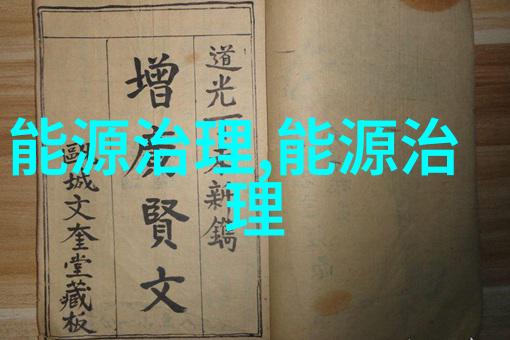 能源治理,能源治
理
道光
新鐫
增廣賢文
城文奎堂藏板